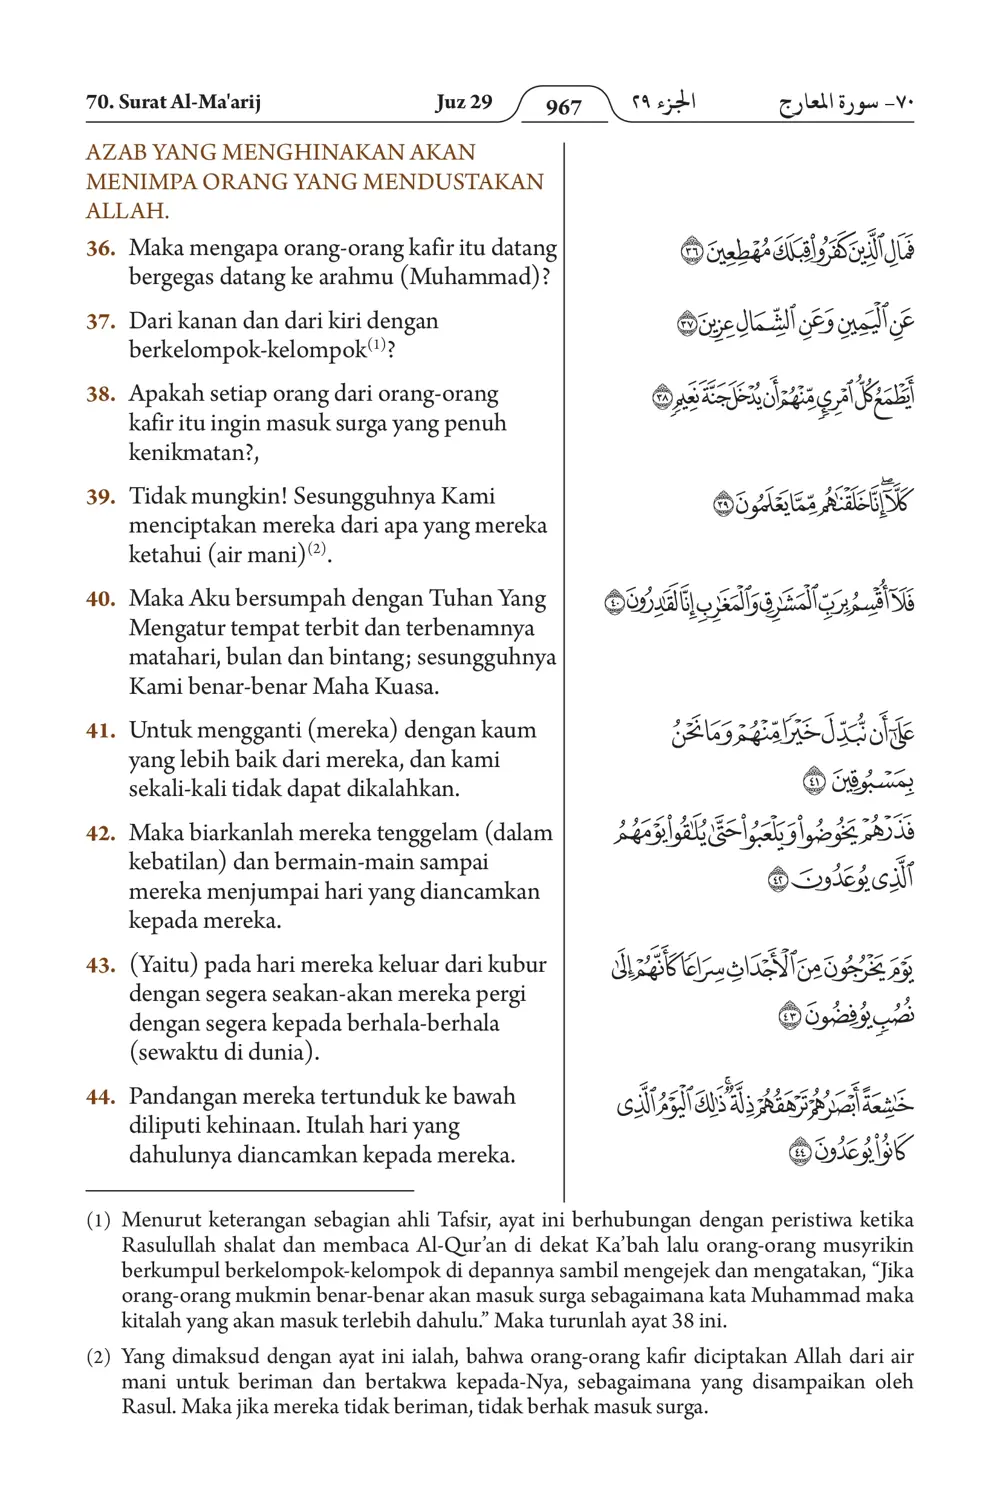 70. Surat Al-Ma'arij Juz 29 967 الجزء ٢٩ ٧٠- سورة المعارج
AZAB YANG MENGHINAKAN AKAN
MENIMPA ORANG YANG MENDUSTAKAN
ALLAH.
36. Maka mengapa orang-orang kafir itu datang
bergegas datang ke arahmu (Muhammad)?
37. Dari kanan dan dari kiri dengan
berkelompok-kelompok(1)?
38. Apakah setiap orang dari orang-orang
kafir itu ingin masuk surga yang penuh
kenikmatan?,
39. Tidak mungkin! Sesungguhnya Kami
menciptakan mereka dari apa yang mereka
ketahui (air mani)(2).
40. Maka Aku bersumpah dengan Tuhan Yang
Mengatur tempat terbit dan terbenamnya
matahari, bulan dan bintang; sesungguhnya
Kami benar-benar Maha Kuasa.
41. Untuk mengganti (mereka) dengan kaum
yang lebih baik dari mereka, dan kami
sekali-kali tidak dapat dikalahkan.
42. Maka biarkanlah mereka tenggelam (dalam
kebatilan) dan bermain-main sampai
mereka menjumpai hari yang diancamkan
kepada mereka.
43. (Yaitu) pada hari mereka keluar dari kubur
dengan segera seakan-akan mereka pergi
dengan segera kepada berhala-berhala
(sewaktu di dunia).
44. Pandangan mereka tertunduk ke bawah
diliputi kehinaan. Itulah hari yang
dahulunya diancamkan kepada mereka.
فَمَالِ ٱلَّذِينَ كَفَرُواْ قِبَلَكَ مُهۡطِعِينَ ٣٦
عَنِ ٱلۡيَمِينِ وَعَنِ ٱلشِّمَالِ عِزِينَ ٣٧
أَيَطۡمَعُ كُلُّ ٱمۡرِيٕٖ مِّنۡهُمۡ أَن يُدۡخَلَ جَنَّةَ نَعِيمٖ ٣٨
كَلَّآۖ إِنَّا خَلَقۡنَٰهُم مِّمَّا يَعۡلَمُونَ ٣٩
فَلَآ أُقۡسِمُ بِرَبِّ ٱلۡمَشَٰرِقِ وَٱلۡمَغَٰرِبِ إِنَّا لَقَٰدِرُونَ ٤٠
عَلَىٰٓ أَن نُّبَدِّلَ خَيۡرٗا مِّنۡهُمۡ وَمَا نَحۡنُ
بِمَسۡبُوقِينَ ٤١
فَذَرۡهُمۡ يَخُوضُواْ وَيَلۡعَبُواْ حَتَّىٰ يُلَٰقُواْ يَوۡمَهُمُ
ٱلَّذِي يُوعَدُونَ ٤٢
يَوۡمَ يَخۡرُجُونَ مِنَ ٱلۡأَجۡدَاثِ سِرَاعٗا كَأَنَّهُمۡ إِلَىٰ
نُصُبٖ يُوفِضُونَ ٤٣
خَٰشِعَةً أَبۡصَٰرُهُمۡ تَرۡهَقُهُمۡ ذِلَّةٞۚ ذَٰلِكَ ٱلۡيَوۡمُ ٱلَّذِي
كَانُواْ يُوعَدُونَ ٤٤
(1) Menurut keterangan sebagian ahli Tafsir, ayat ini berhubungan dengan peristiwa ketika
Rasulullah shalat dan membaca Al-Qur’an di dekat Ka’bah lalu orang-orang musyrikin
berkumpul berkelompok-kelompok di depannya sambil mengejek dan mengatakan, “Jika
orang-orang mukmin benar-benar akan masuk surga sebagaimana kata Muhammad maka
kitalah yang akan masuk terlebih dahulu.” Maka turunlah ayat 38 ini.
(2) Yang dimaksud dengan ayat ini ialah, bahwa orang-orang kafir diciptakan Allah dari air
mani untuk beriman dan bertakwa kepada-Nya, sebagaimana yang disampaikan oleh
Rasul. Maka jika mereka tidak beriman, tidak berhak masuk surga.